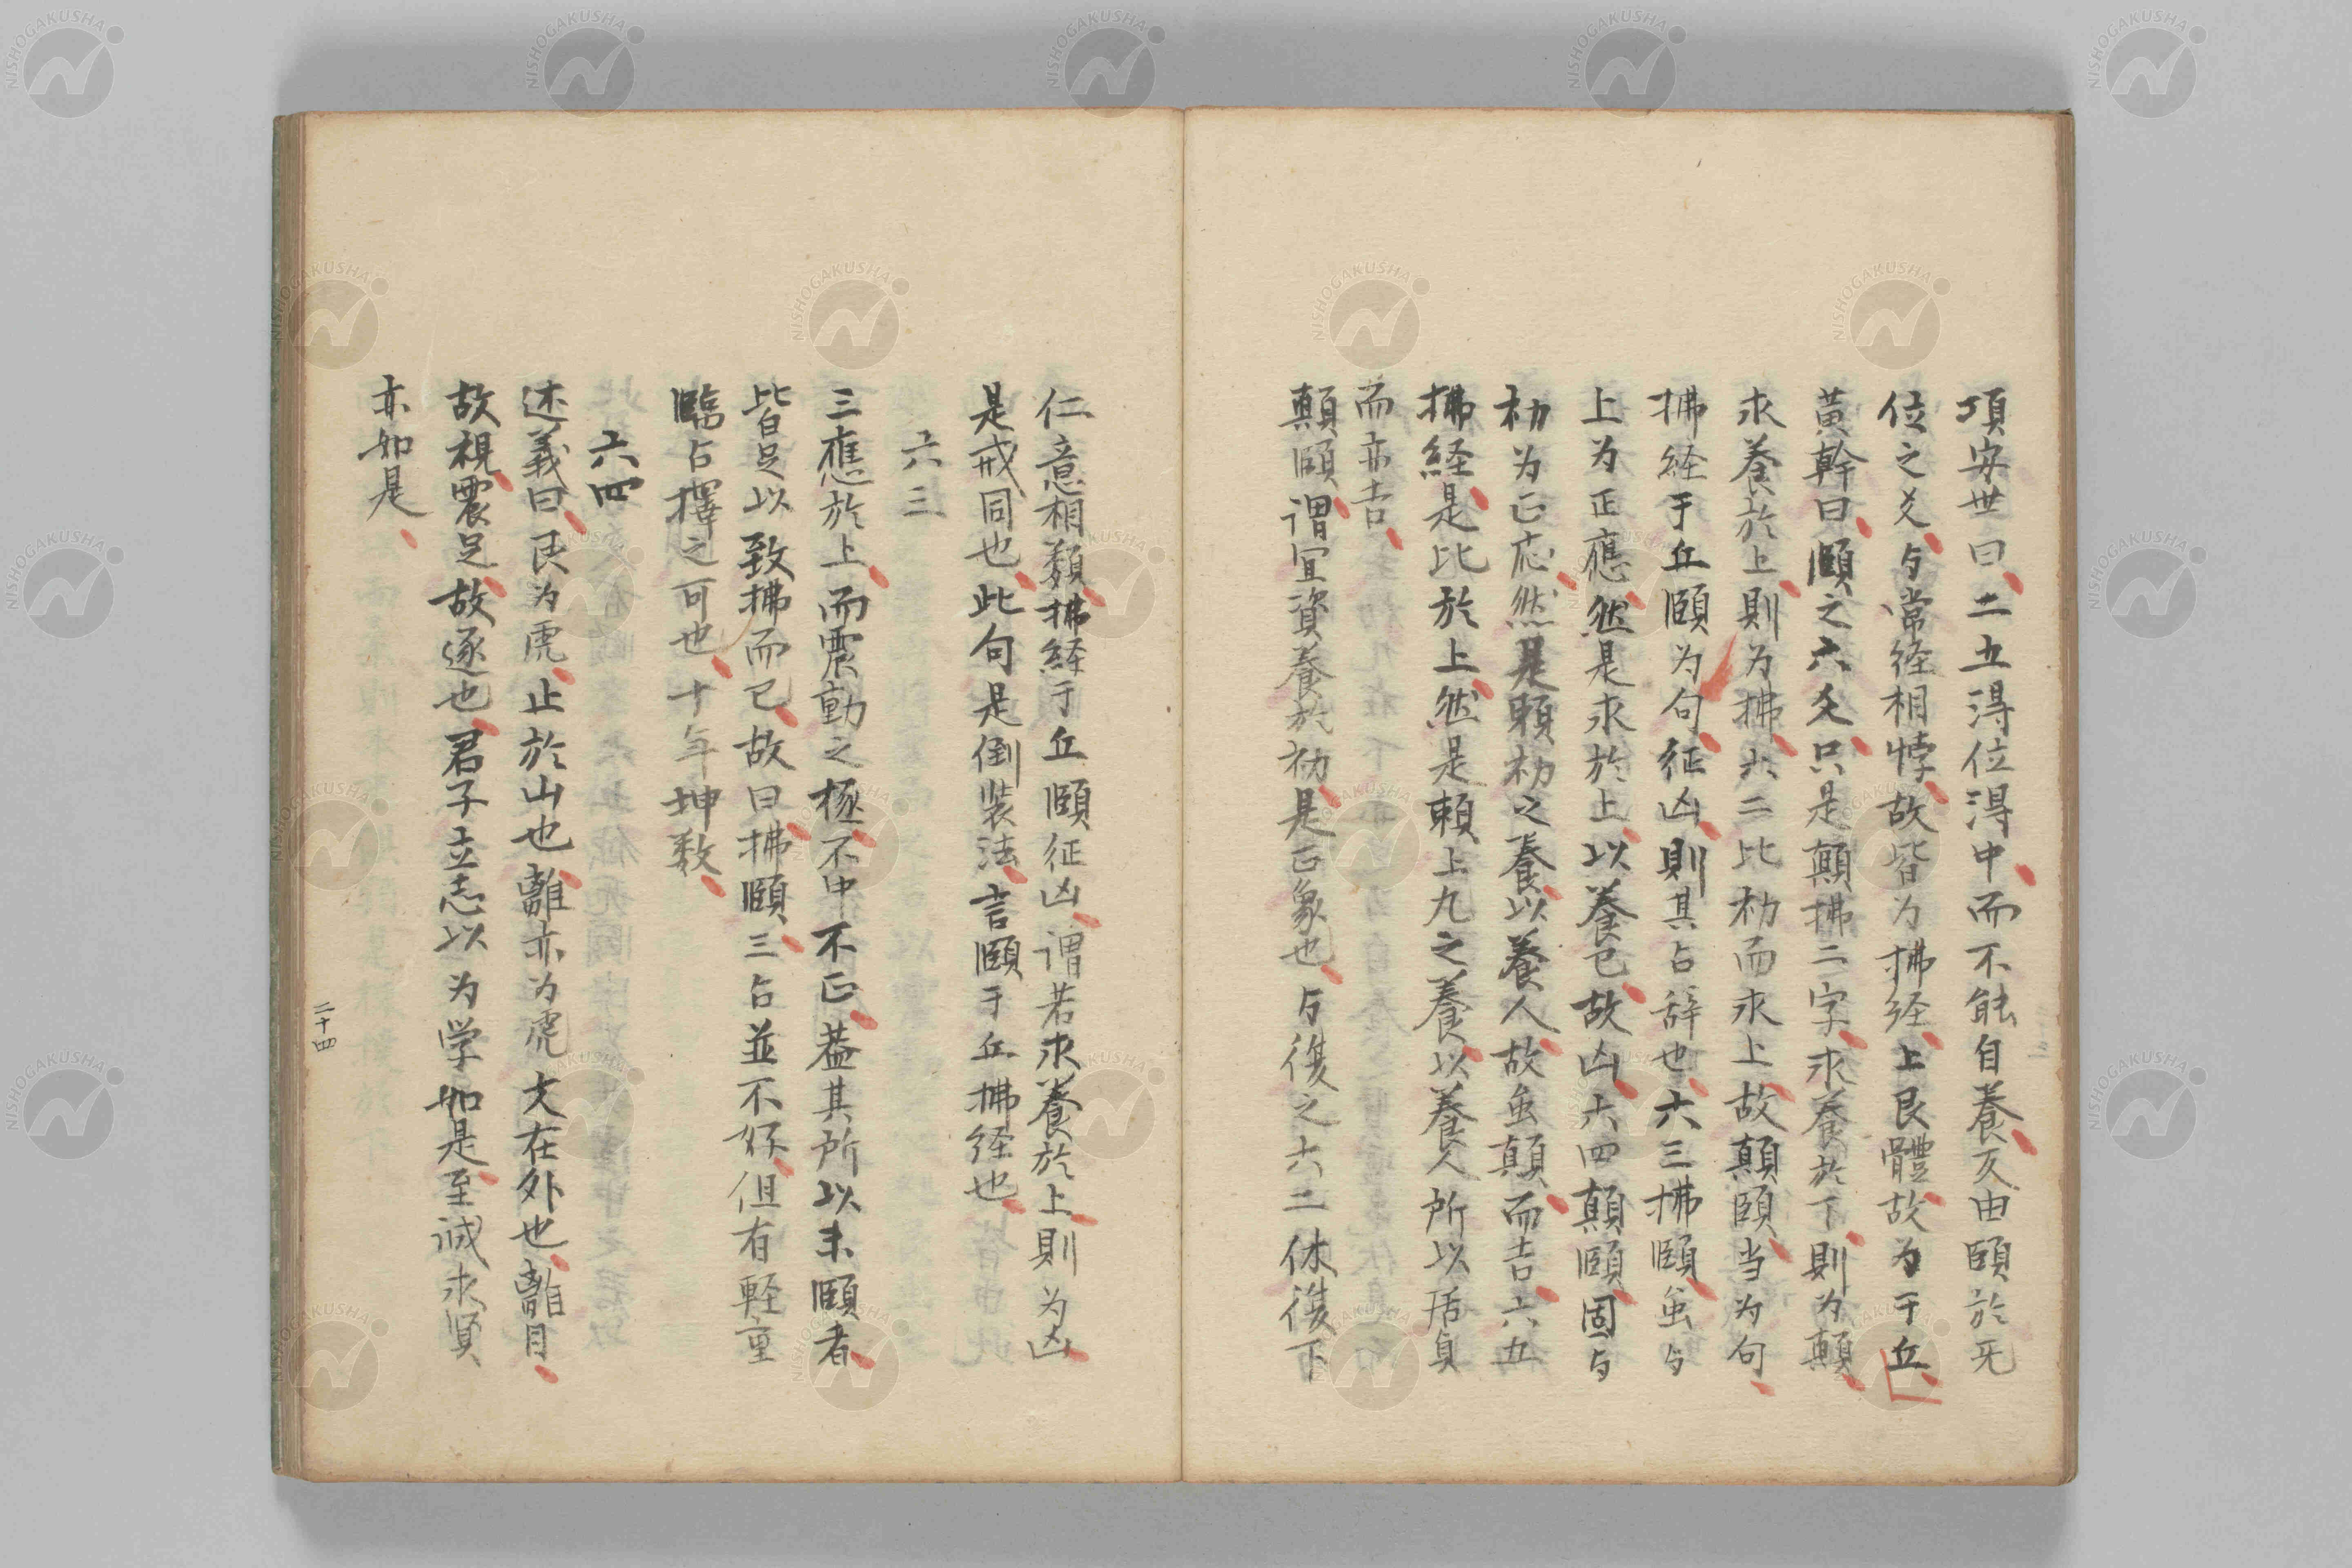 項安世曰二五得位得中而不能自養反由頤於无
位之爻与常経相悖故皆为拂経上艮體故为于丘
黄幹曰頤之六爻只是顛拂二字求養於下則为顛
求養於上則为拂六二比初而求上故顛頤当为句
拂経于丘頤为句征凶則其占辞也六三拂頤虽与
上为正應然是求於上以養已故凶六四顛頤固与
初为正应然是頼初之養以養人故虽顛而吉六五
拂経是比於上然是頼上九之養以養人所以居貞
而亦吉
顛頤謂宜資養於初是正象也与復之六二休復下
仁意相類拂経于丘頤征凶謂若求養於上則为凶
是戒同也此句是倒装法言頤于丘拂経也
六三
三應於上而震動之極不中不正葢其所以未頤者
皆足以致拂而已故曰拂頤三占並不好但有軽重
臨占擇之可也十年坤数
六四
述義曰艮为虎止於山也離亦为虎文在外也離目
故視震足故逐也君子立志以为学如是至誠求賢
亦如是
二十四
NISHOGAKUSHA